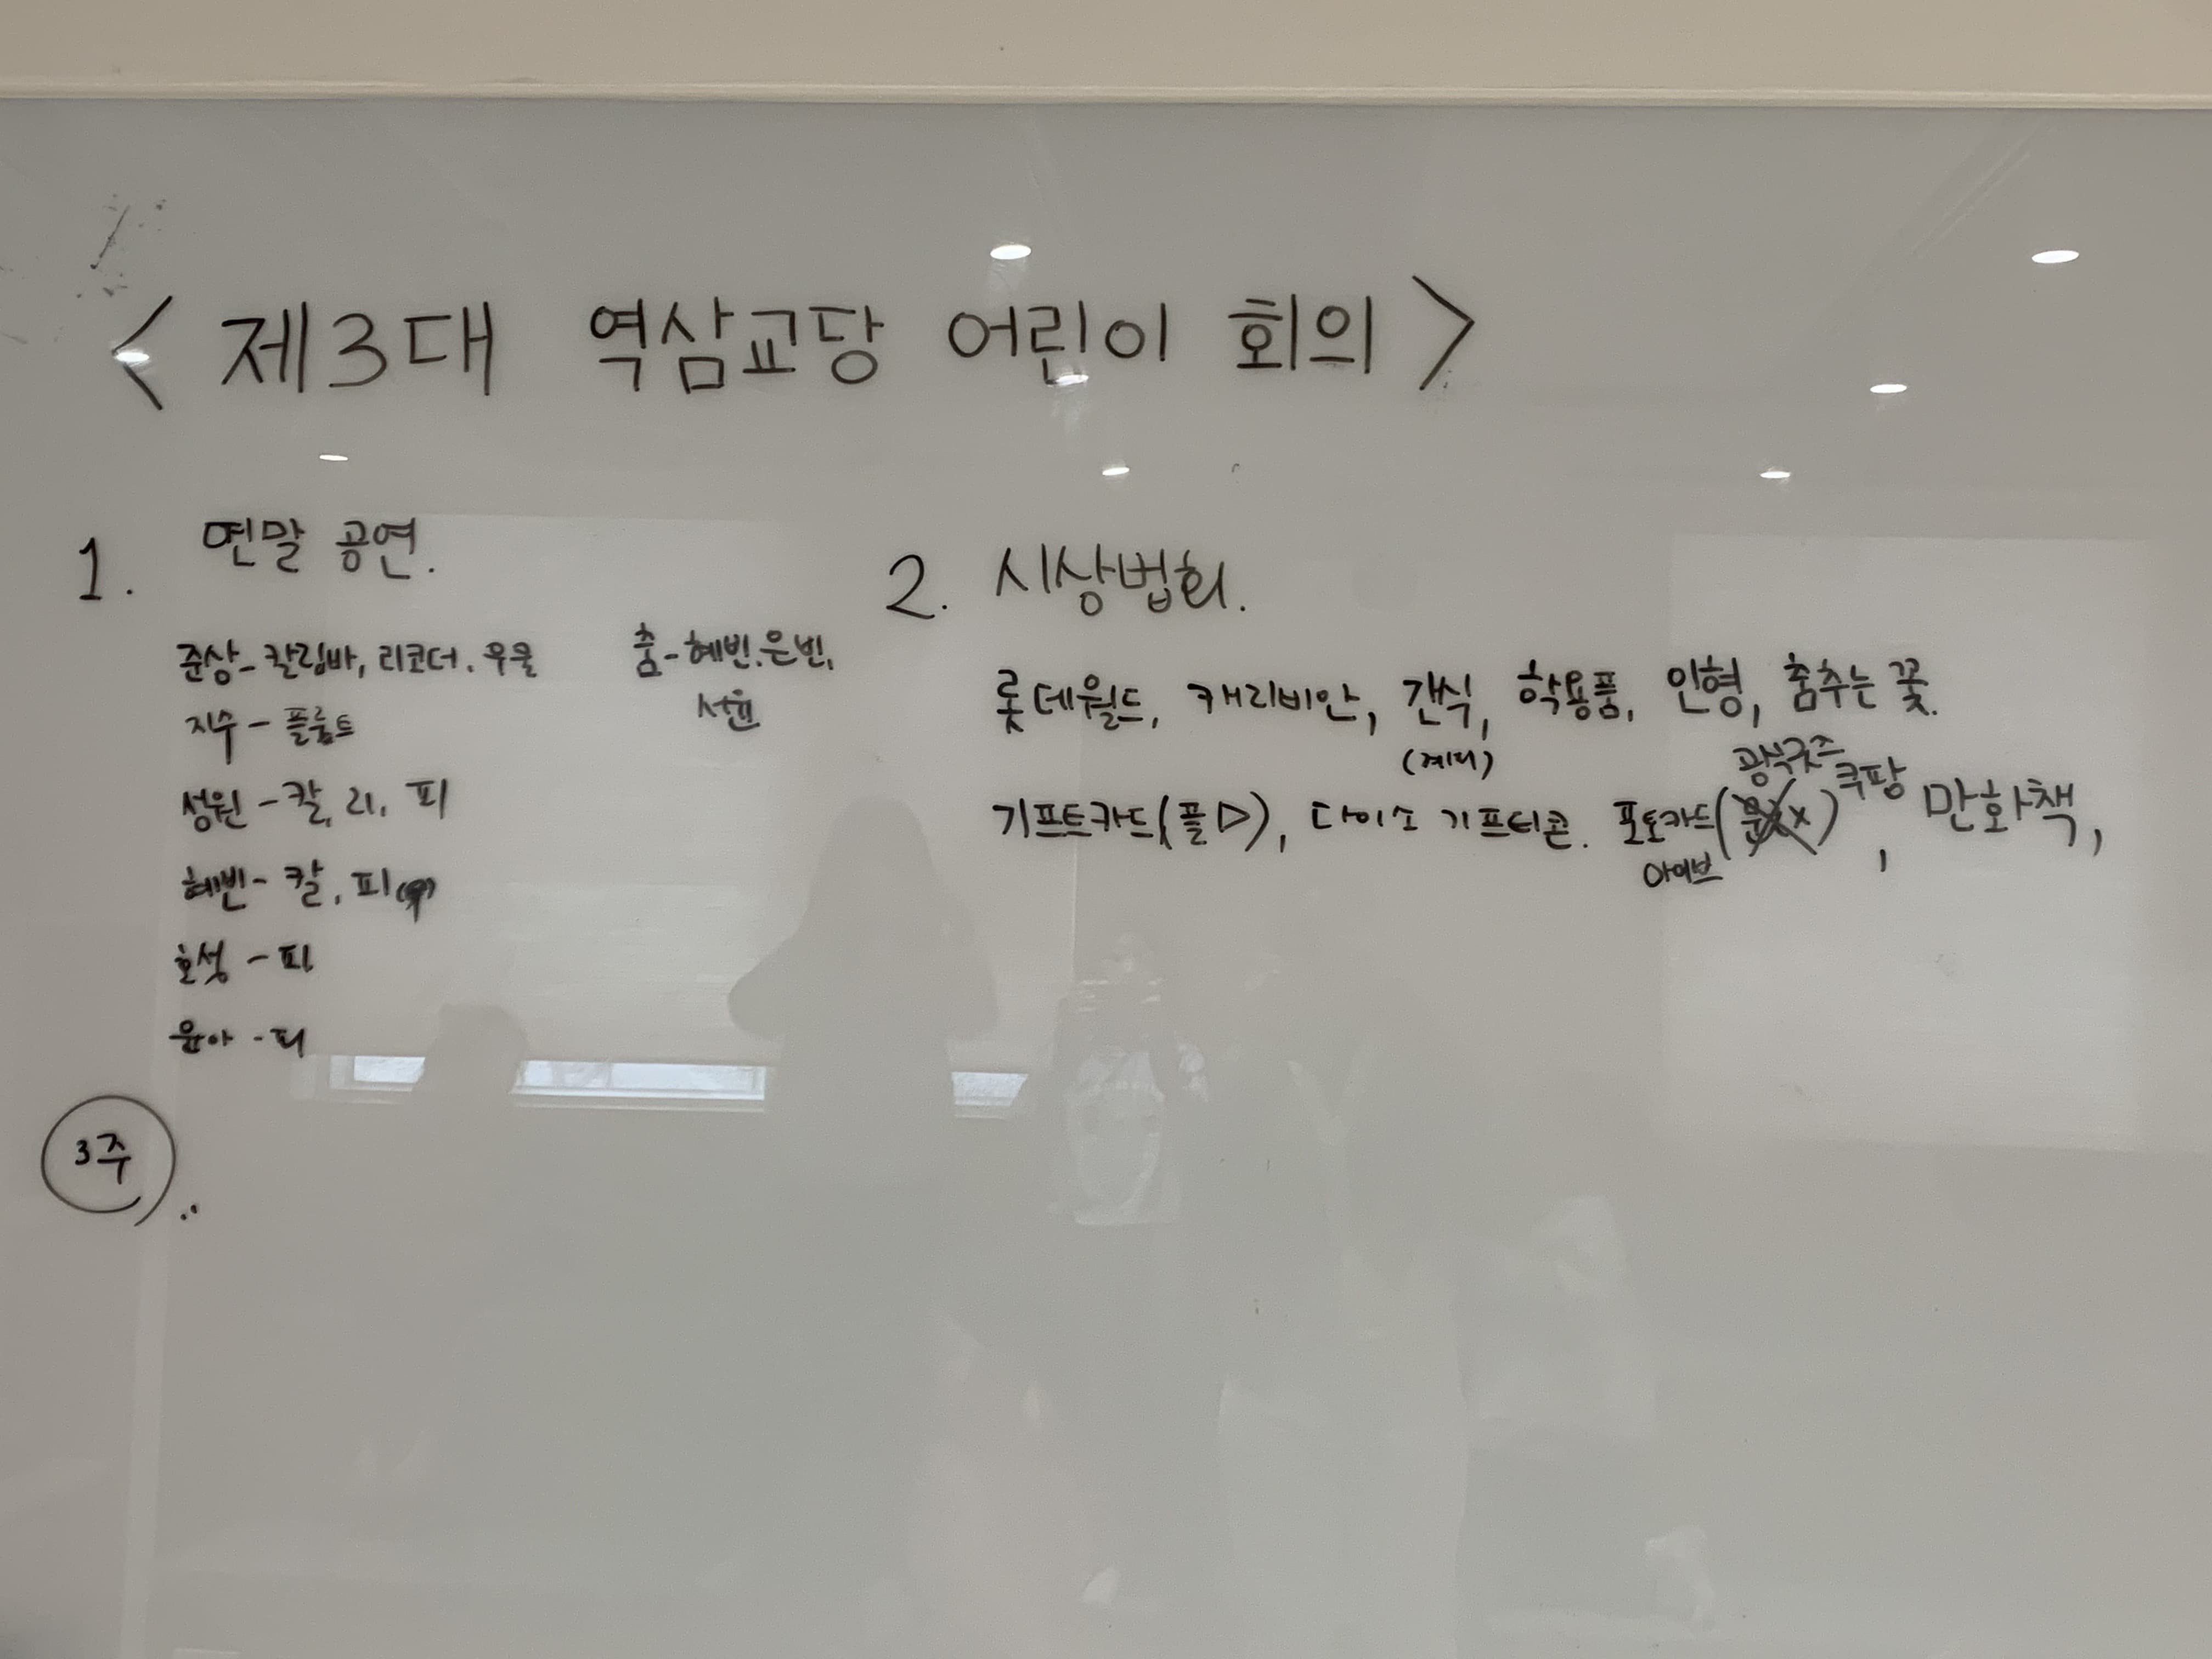 < 제3대 역삼교당 어린이 회의 >
1. 연말 공연.
준상 - 칼림바, 리코더. 우쿨
지수 - 플룻트
성원 - 칼, 리, 피
혜빈 - 칼, 피
호성 - 피
윤아 - 피
춤 - 혜빈. 은빈,
서윤
3주
2. 시상법회.
롯데월드, 캐리비안, 간식, 학용품, 인형, 춤추는 꽃.
(계피)
광식굿즈
기프트카드(플▷), 다이소 기프티콘. 포토카드( ) 쿠팡, 만화책,
아이브